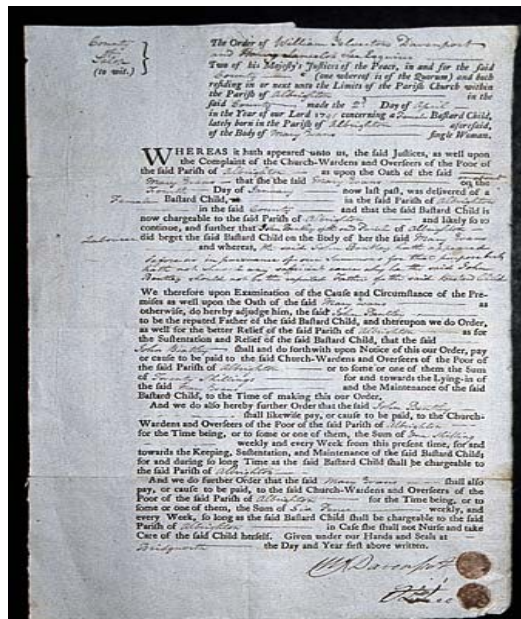 County of Salop (to wit.) }
The Order of William Davenport
and Henry Lee Esquires
Two of his Majesty's Justices of the Peace, in and for the said
County (one whereof is of the Quorum) and both
residing in or next unto the Limits of the Parish Church within
the Parish of Albrighton in the
said County made the 2d Day of April
in the Year of our Lord concerning a Female Bastard Child,
lately born in the Parish of Albrighton aforesaid,
of the Body of Mary Evans single Woman.
WHEREAS it hath appeared unto us, the said Justices, as well upon
the Complaint of the Church-Wardens and Overseers of the Poor of
the said Parish of Albrighton as upon the Oath of the said
Mary Evans that she the said Mary Evans on the
Day of January now last past, was delivered of a
Female Bastard Child, in the said Parish of Albrighton
in the said County and that the said Bastard Child is
now chargeable to the said Parish of Albrighton and likely so to
continue, and further that John of the Parish of Albrighton
Labourer did beget the said Bastard Child on the Body of her the said Mary Evans
and whereas, the said John
the said John
should not be the reputed Father of the said Bastard Child
We therefore upon Examination of the Cause and Circumstance of the Pre-
mises as well upon the Oath of the said Mary Evans as
otherwise, do hereby adjudge him, the said John
to be the reputed Father of the said Bastard Child, and thereupon we do Order,
as well for the better Relief of the said Parish of Albrighton as for
the Sustentation and Relief of the said Bastard Child, that the said
John shall and do forthwith upon Notice of this our Order, pay
or cause to be paid to the said Church-Wardens and Overseers of the Poor of
the said Parish of Albrighton or to some or one of them the Sum
of Twenty Shillings for and towards the Lying-in of
the said Mary Evans and the Maintenance of the said
Bastard Child, to the Time of making this our Order.
And we do also hereby further Order that the said John
shall likewise pay, or cause to be paid, to the Church-
Wardens and Overseers of the Poor of the said Parish of Albrighton
for the Time being, or to some or one of them, the Sum of One Shilling
weekly and every Week from this present time, for and
towards the Keeping, Sustentation, and Maintenance of the said Bastard Child;
for and during so long Time as the said Bastard Child shall be chargeable to
the said Parish of Albrighton
And we do further Order that the said Mary Evans shall also
pay, or cause to be paid, to the said Church-Wardens and Overseers of the
Poor of the said Parish of Albrighton for the Time being, or to
some or one of them, the Sum of Six Pence weekly, and
every Week, so long as the said Bastard Child shall be chargeable to the said
Parish of Albrighton in Case she shall not Nurse and take
Care of the said Child herself. Given under our Hands and Seals at
Bridgnorth the Day and Year first above written.
Wm Davenport
Lee